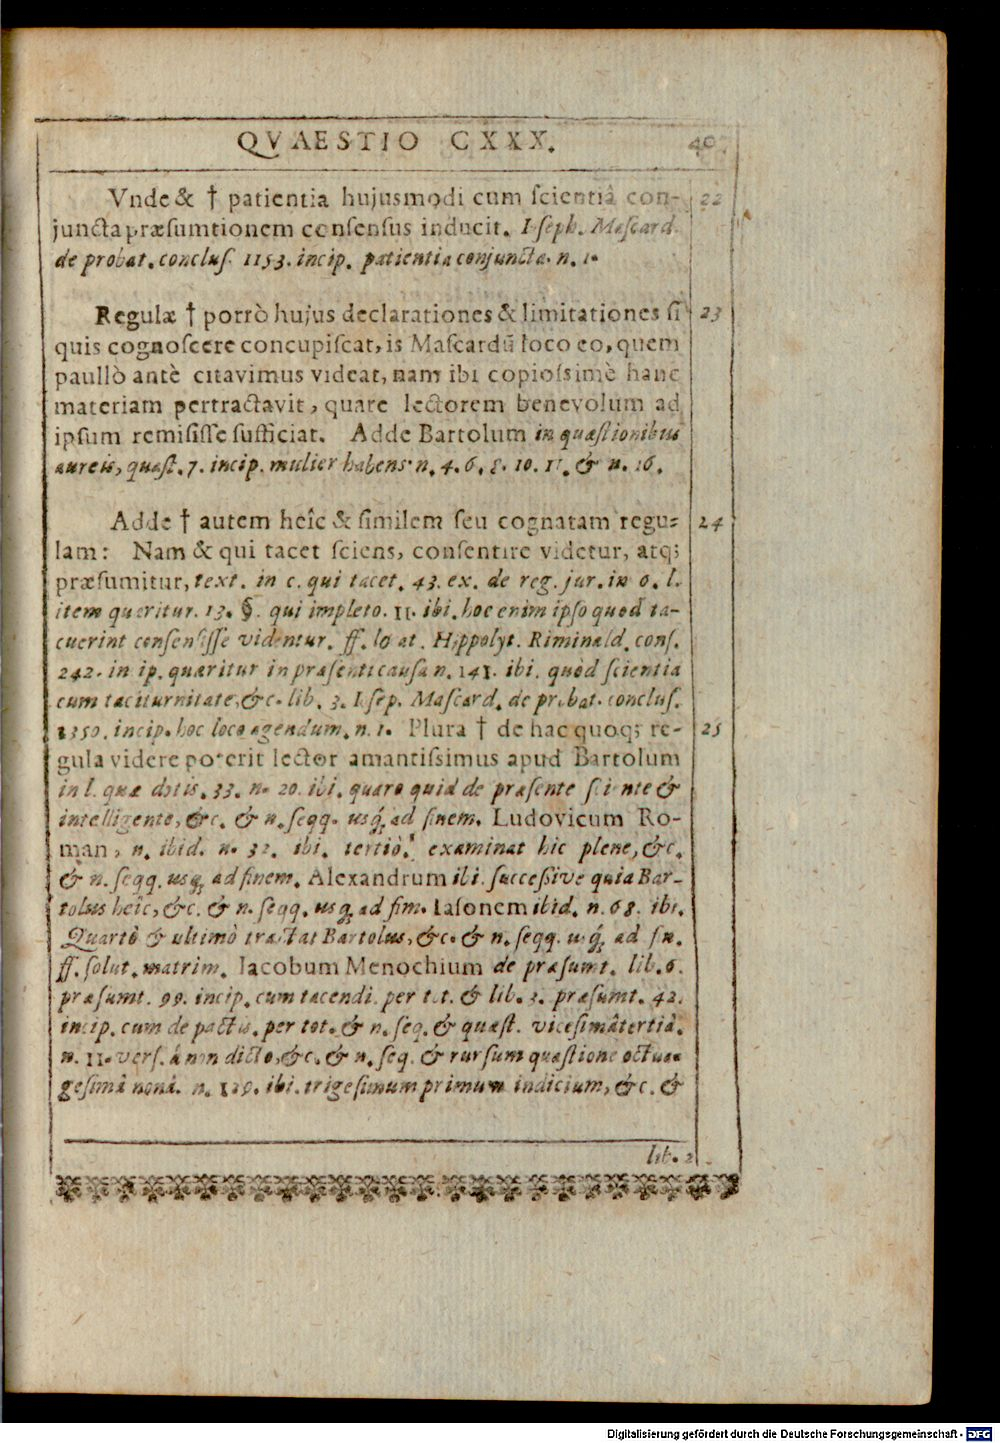 QVAESTIO CXXX. 40
Vnde & † patientia hujusmodi cum ſcientiâ con- 22
juncta præſumtionem conſenſus inducit. Ioſeph. Maſcard.
de probat. concluſ. 1153. incip. patientia conjuncta. n. 1.
Regulæ † porrò hujus declarationes & limitationes ſi 23
quis cognoſcere concupiſcat, is Maſcardũ loco eo, quem
paullò antè citavimus videat, nam ibi copioſsimè hanc
materiam pertractavit, quare lectorem benevolum ad
ipſum remiſiſſe ſufficiat. Adde Bartolum in quæſtionibus
aureis, quæſt. 7. incip. mulier habens n. 4. 6. 8. 10. 11. & n. 16.
Adde † autem heîc & ſimilem ſeu cognatam regu- 24
lam: Nam & qui tacet ſciens, conſentire videtur, atq;
præſumitur, text. in c. qui tacet. 43. ex. de reg. jur. in 6. l.
item quæritur. 13. §. qui impleto. 11. ibi. hoc enim ipſo quod ta-
cuerint conſenſiſſe videntur. ff. locat. Hippolyt. Riminald. conſ.
242. in ip. quæritur in præſenti cauſa n. 141. ibi. quòd ſcientia
cum taciturnitate, &c. lib. 3. Ioſep. Maſcard. de probat. concluſ.
1350. incip. hoc loco agendum. n. 1. Plura † de hac quoq; re- 25
gula videre poterit lector amantiſsimus apud Bartolum
in l. quæ dotis. 33. n. 20. ibi. quæro quid de præſente ſciente &
intelligente, &c. & n. ſeqq. uſq; ad finem. Ludovicum Ro-
man, n. ibid. n. 32. ibi. tertiò. examinat hic plene, &c.
& n. ſeqq. uſq; ad finem. Alexandrum ibi. ſucceſſive quia Bar-
tolus heîc, &c. & n. ſeqq. uſq; ad fim. Iaſonem ibid. n. 68. ibi.
Quartò & ultimò tractat Bartolus, &c. & n. ſeqq. uſq; ad fin.
ff. ſolut. matrim. Iacobum Menochium de præſumt. lib. 6.
præſumt. 99. incip. cum tacendi. per tot. & lib. 3. præſumt. 42.
incip. cum de pactis. per tot. & n. ſeq. & quæſt. viceſimâtertiâ.
n. 11. verſ. à non dicto, &c. & n. ſeq. & rurſum quæſtione octua-
geſimâ nonâ. n. 129. ibi. trigeſimum primum indicium, &c. &
lib. 2.
Digitalisierung gefördert durch die Deutsche Forschungsgemeinschaft - DFG